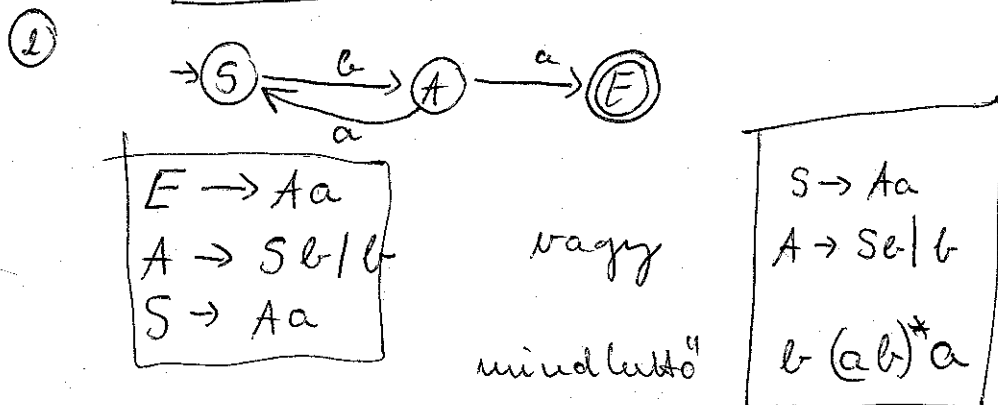 2
→ S b A a E
a
E → Aa
A → Sb/b
S → Aa
vagy
mindkettő
S → Aa
A → Sb/b
b (ab)*a